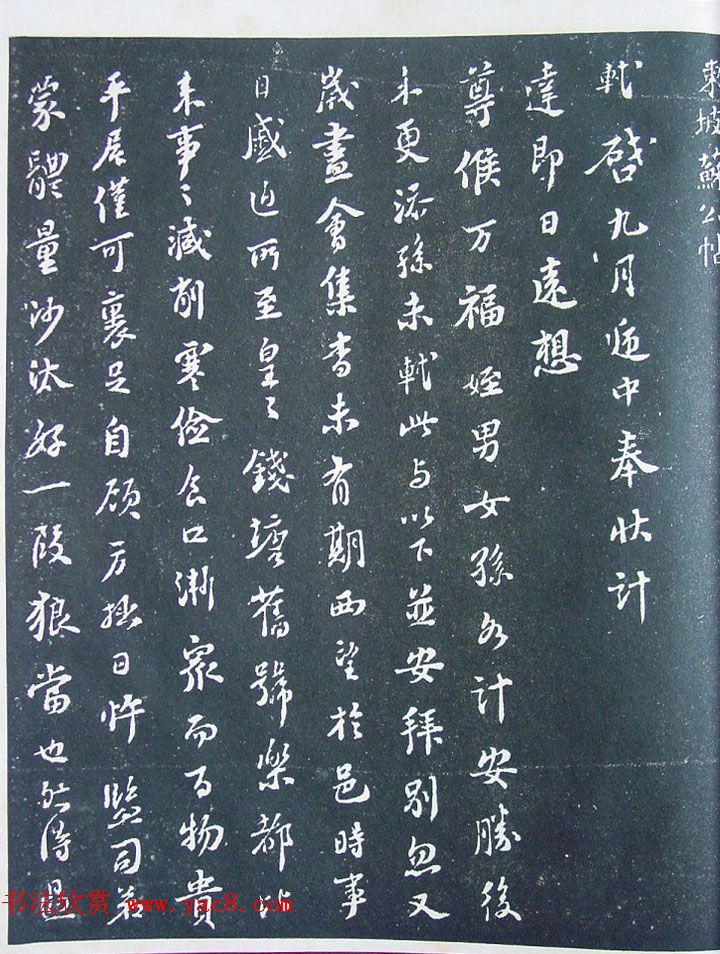 東坡蘇公帖
軾啓九月遞中奉狀計
達即日遠想
尊候万福姪男女孫各計安勝後
來更添孫未軾此与以下並安拜別忽又
歲盡會集杳未有期西望於邑時事
日蹙迫所至皇〻錢塘舊號樂都
来事〻減削寒儉食口漸衆而百物貴
平居僅可裹足自顧方拙日忤監司若
蒙體量沙汰好一段狼當也聖得過
书法欣赏 www.yac8.com